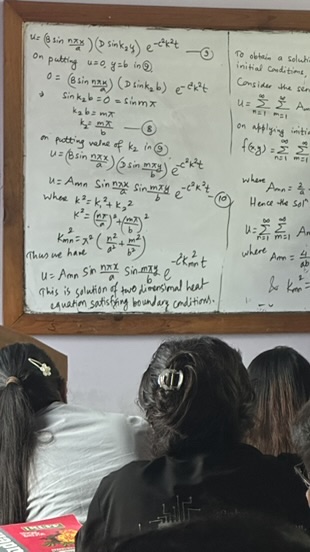 u = (B sin nπx/a) (D sin k₂y) e^-c²k²t — ⑨
on putting u=0, y=b in ⑨
0 = (B sin nπx/a) (D sin k₂b) e^-c²k²t
sin k₂b = 0 = sin mπ
k₂b = mπ
k₂ = mπ/b — ⑧
on putting value of k₂ in ⑨
u = (B sin nπx/a) (D sin mπy/b) e^-c²k²t
u = Amn sin nπx/a sin mπy/b e^-c²k²t — ⑩
where k² = k₁² + k₂²
k² = (nπ/a)² + (mπ/b)²
k²mn = π² (n²/a² + m²/b²)
Thus we have
u = Amn sin nπx/a sin mπy/b e^-c²k²mn t
This is solution of two dimensional heat
equation satisfying boundary conditions.
To obtain a soluti
initial conditions,
Consider the ser
u = ∞Σn=1 ∞Σm=1 Am
on applying initi
f(x,y) = ∞Σn=1 ∞Σm=1
where
Amn = 2/a
Hence the sol
u = ∞Σn=1 ∞Σm=1 Am
where Amn = 4/ab
& kmn =